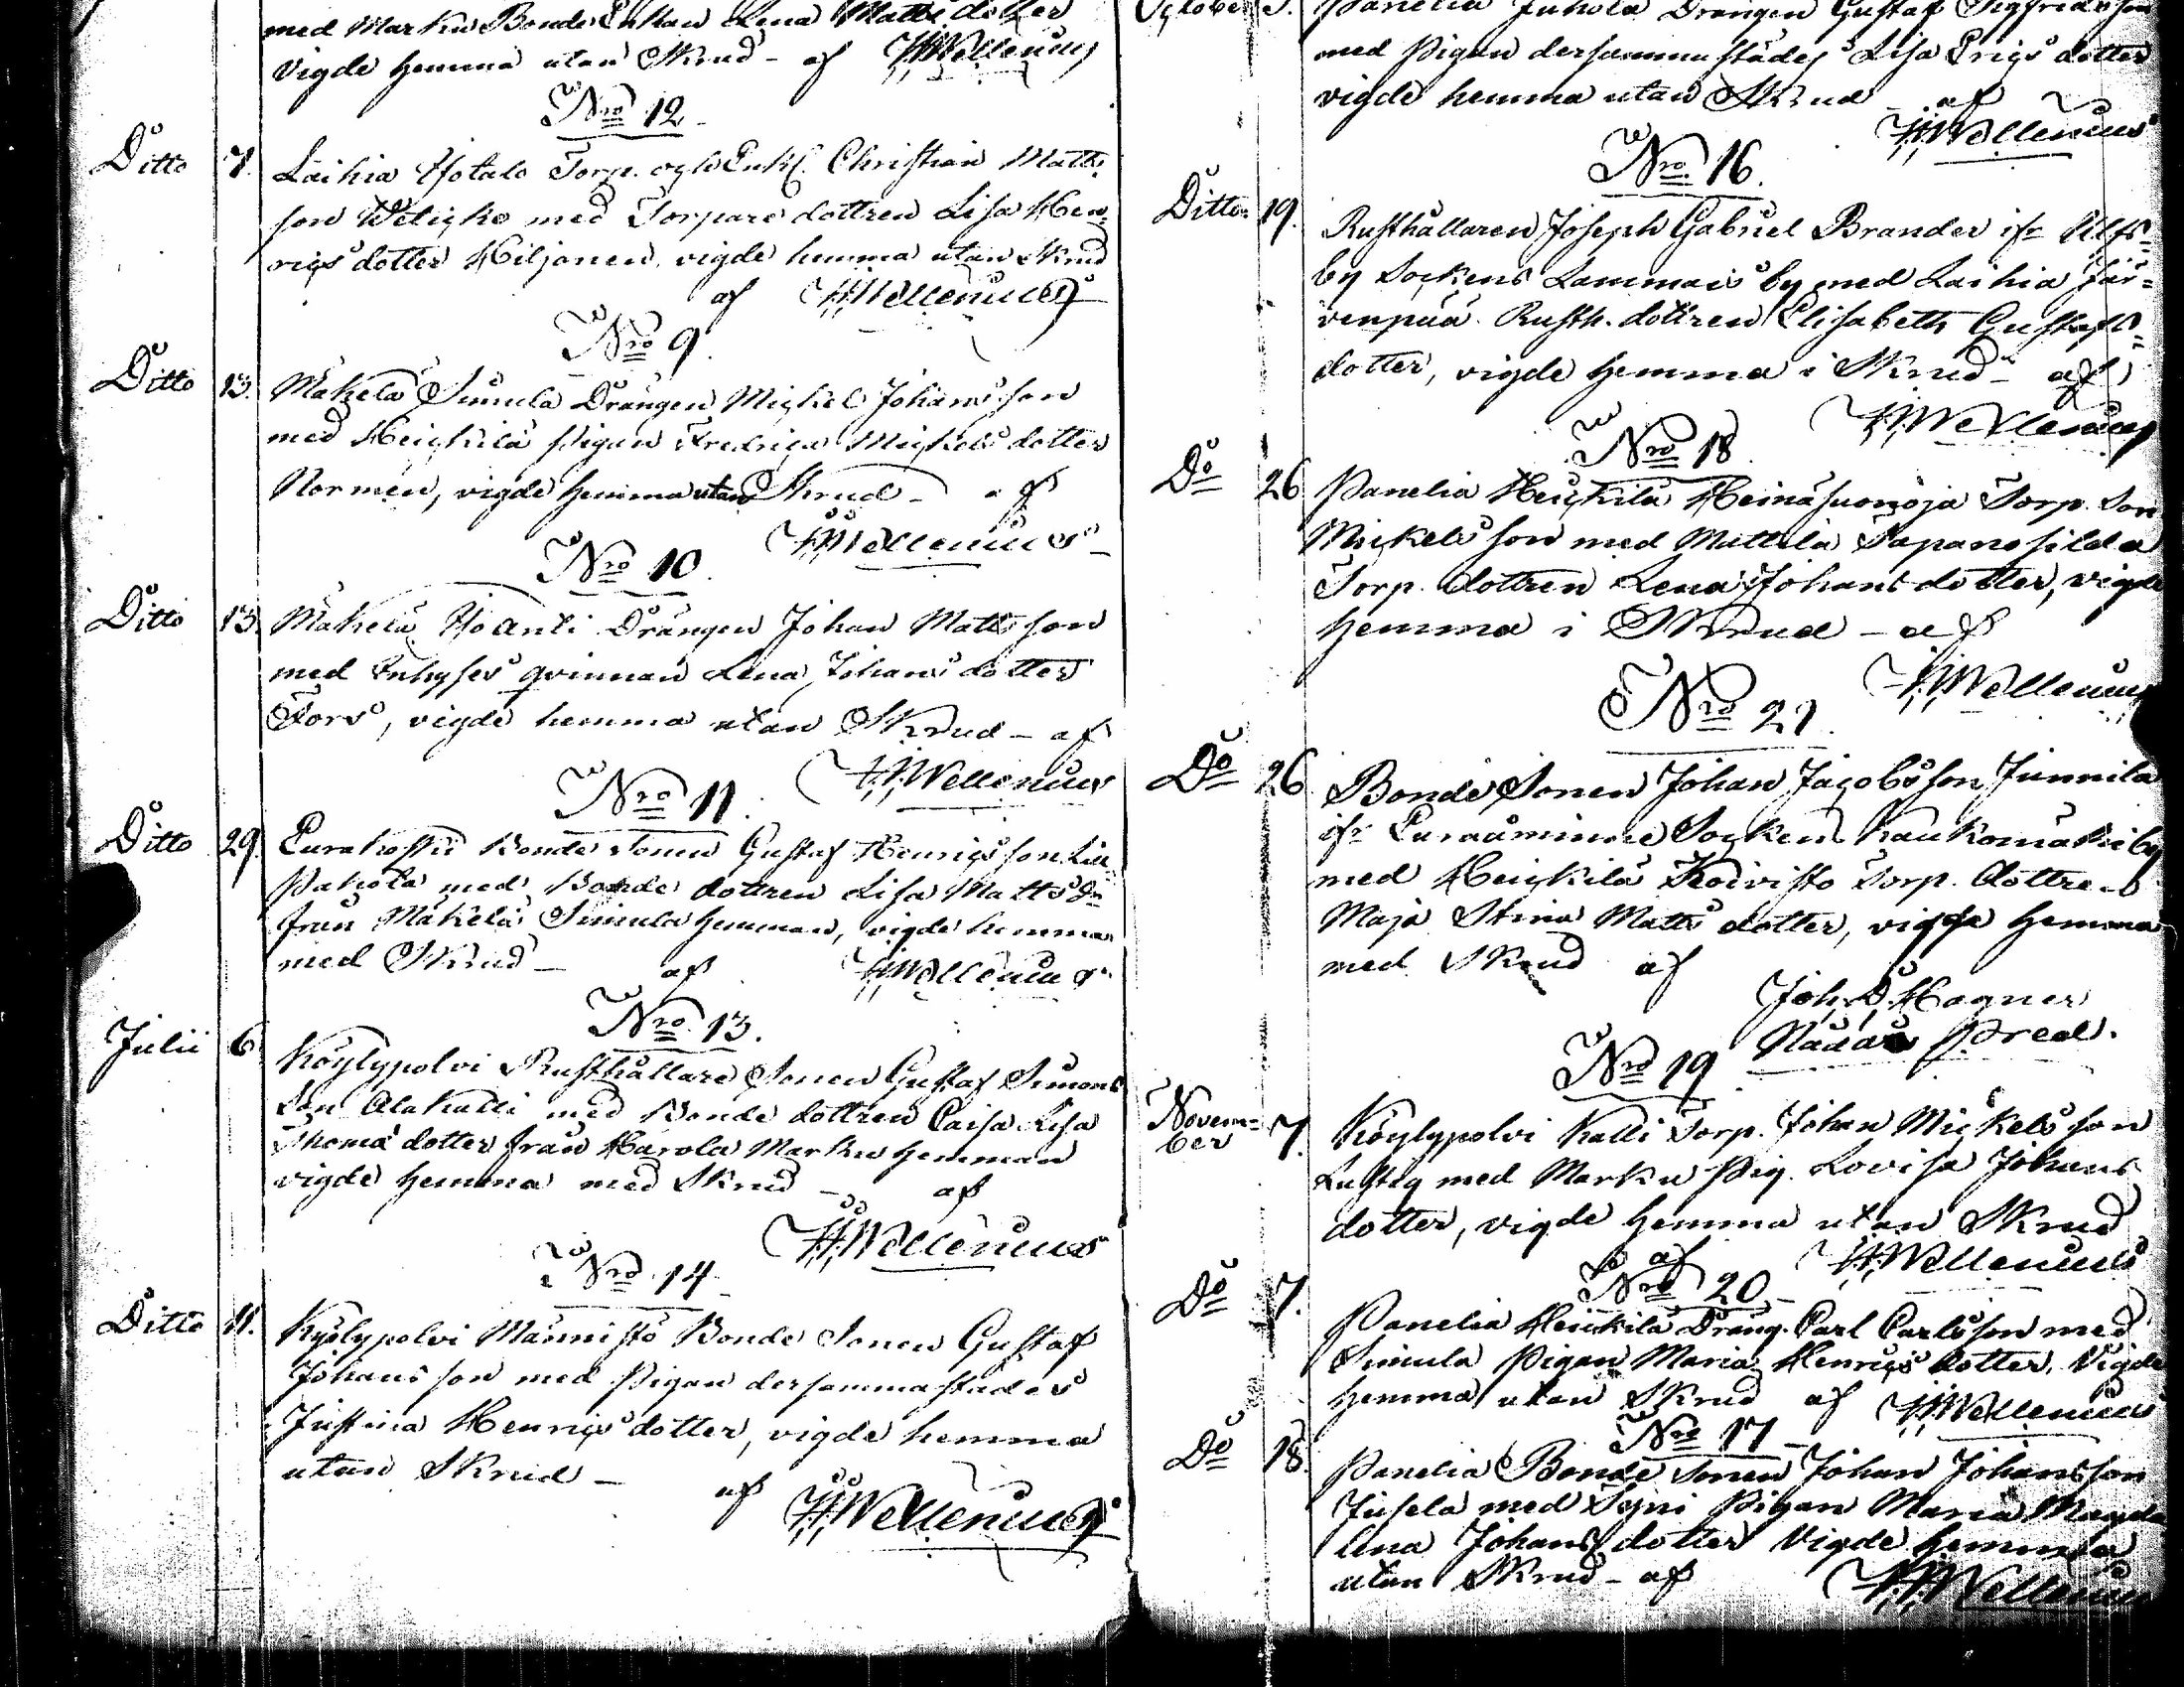 med Marku Bonde Enkan Lena Matts dotter
vigde hemma utan Skrud - af HWellenius
Nro 12
Ditto 7. Laihia Yotalo Torp. och Enkl. Christian Matts
son Weligke med Torpare dottren Lisa Hen
rigs dotter Kiljonen, vigde hemma utan Skrud
af HWellenius
Nro 9.
Ditto 13. Mäkelä Simula Drängen Mickel Johans son
med Heickilä Pigan Fredrica Mickels dotter
Normen, vigde hemma utan Skrud - af
HWellenius
Nro 10.
Ditto 13. Mäkelä Yo Anti Drängen Johan Matts son
med Inhyses qvinnan Lena Johans dotter
Fors, vigde hemma utan Skrud - af
HWellenius
Nro 11.
Ditto 29. Eurakoski Bonde Sonen Gustaf Henrics son Lill
Pakola med Bonde dottren Lisa Matts dr
från Mäkelä Simula hemman, vigde hemma
med Skrud - af HWellenius
Nro 13.
Julii 6 Köylypolvi Rusthållare Sonen Gustaf Simons
Son Alakalli med Bonde dottren Caisa Lisa
Thomæ dotter från Harola Marku hemman
vigde hemma med Skrud - af
HWellenius
Nro 14
Ditto 11. Kyölypolvi Männistö Bonde Sonen Gustaf
Johans son med Pigan dersammastädes
Justina Henrics dotter, vigde hemma
utan Skrud -
af HWellenius
October 5. Panelia Juhola Drängen Gustaf Sigfreds son
med Pigan dersammastädes Lisa Erigs dotter
vigde hemma utan Skrud - af
HWellenius
Nro 16.
Ditto 19. Rusthållaren Joseph Gabriel Brander ifr Ulfs=
by Sockens Lammais by med Laihia Jär=
venpää Rusth. dottren Elisabeth Gustafs=
dotter, vigde hemma i Skrud - af
HWellenius
Nro 18
Do 26 Panelia Heickilä Heinäsuonoja Torp. Son
Mickels son med Mattila Sapanosilda
Torp. dottren Lena Johans dotter, vigde
hemma i Skrud - af
HWellenius
Nro 21
Do 26 Bonde Sonen Johan Jacobs son Junnila
ifr Euraåminne Socken Kaukomäki by
med Heickilä Koivisto Torp. dottren
Maja Stina Matts dotter, vigde hemma
med Skrud af
Joh. D. Hagner
Nådårs Pred.
Nro 19
Novem=
ber 7. Köylypolvi Kalli Torp. Johan Mickels son
Lustig med Marku Pig. Lovisa Johans
dotter, vigde hemma utan Skrud
af HWellenius
Nro 20
Do 7. Panelia Heickilä Dräng. Carl Carls son med
Simula Pigan Maria Henrics dotter. Vigde
hemma utan Skrud af HWellenius
Nro 17
Do 18. Panelia Bonde Sonen Johan Johans son
Jusela med Sepri Pigan Maria Magda
lena Johans dotter Vigde hemma
utan Skrud - af HWellenius